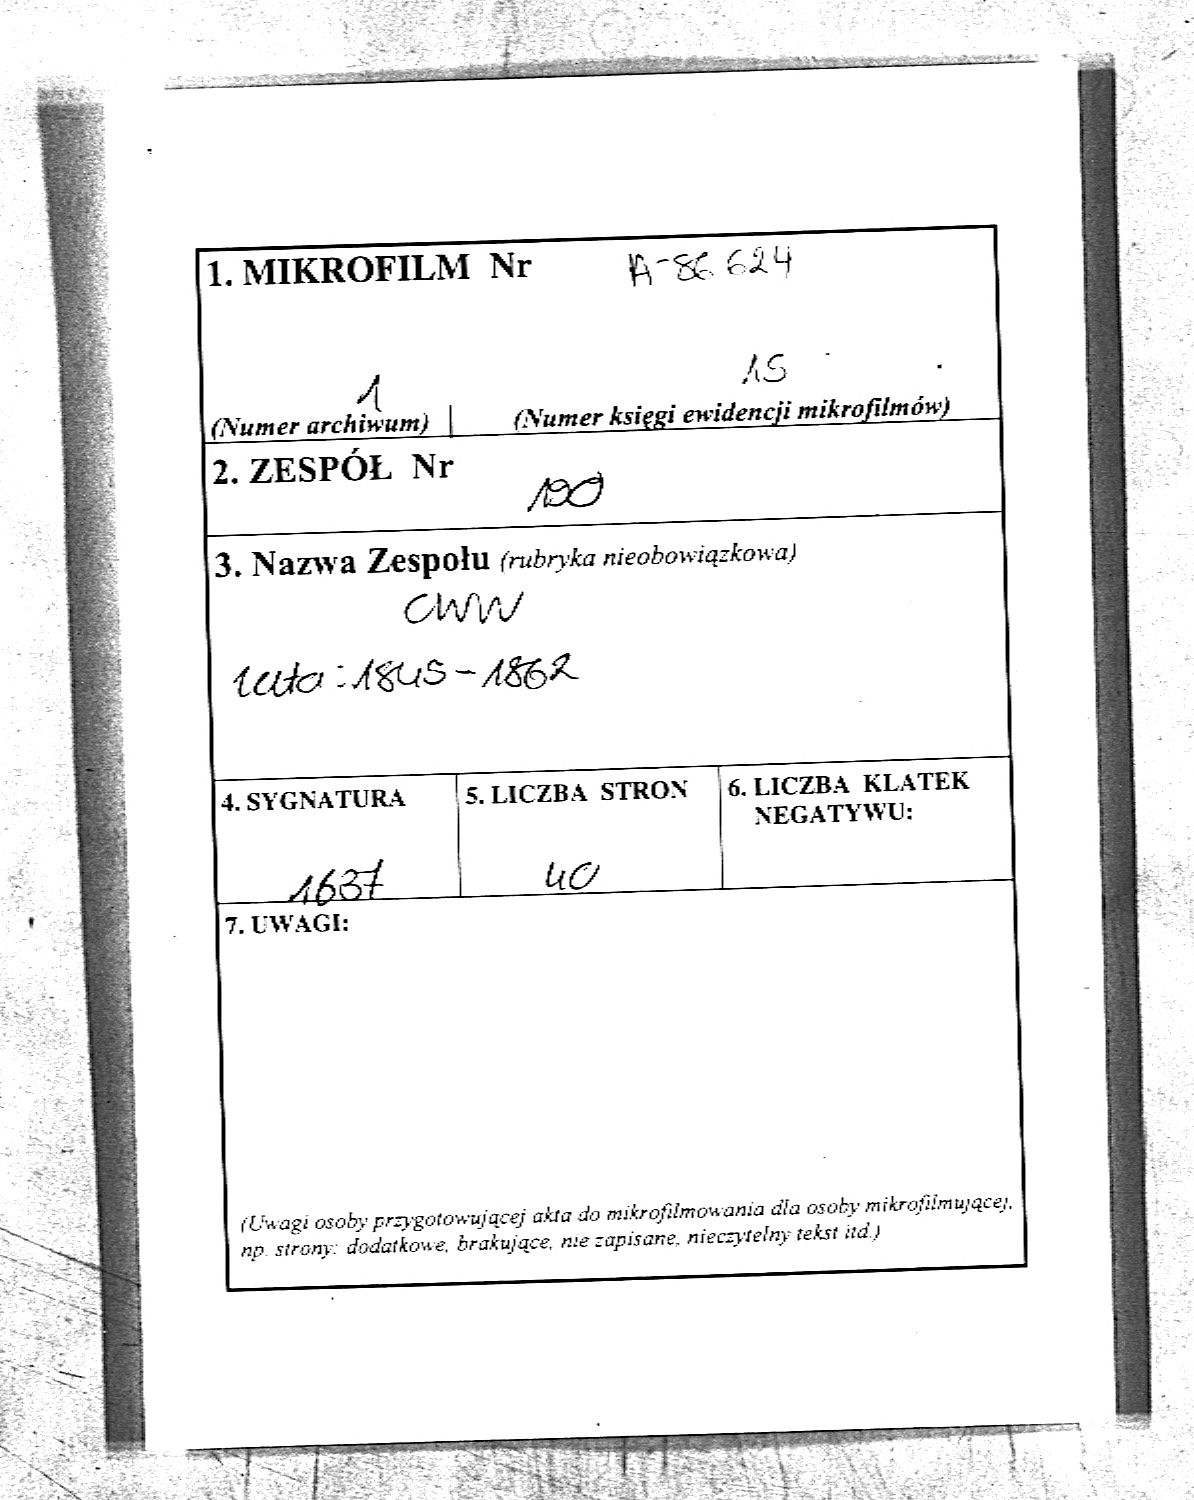 1. MIKROFILM Nr A-86.624
1 15
(Numer archiwum) (Numer księgi ewidencji mikrofilmów)
2. ZESPÓŁ Nr
190
3. Nazwa Zespołu (rubryka nieobowiązkowa)
CWW
lata: 1845-1862
4. SYGNATURA 5. LICZBA STRON 6. LICZBA KLATEK
NEGATYWU:
1637 40
7. UWAGI:
(Uwagi osoby przygotowującej akta do mikrofilmowania dla osoby mikrofilmującej,
np. strony: dodatkowe, brakujące, nie zapisane, nieczytelny tekst itd.)